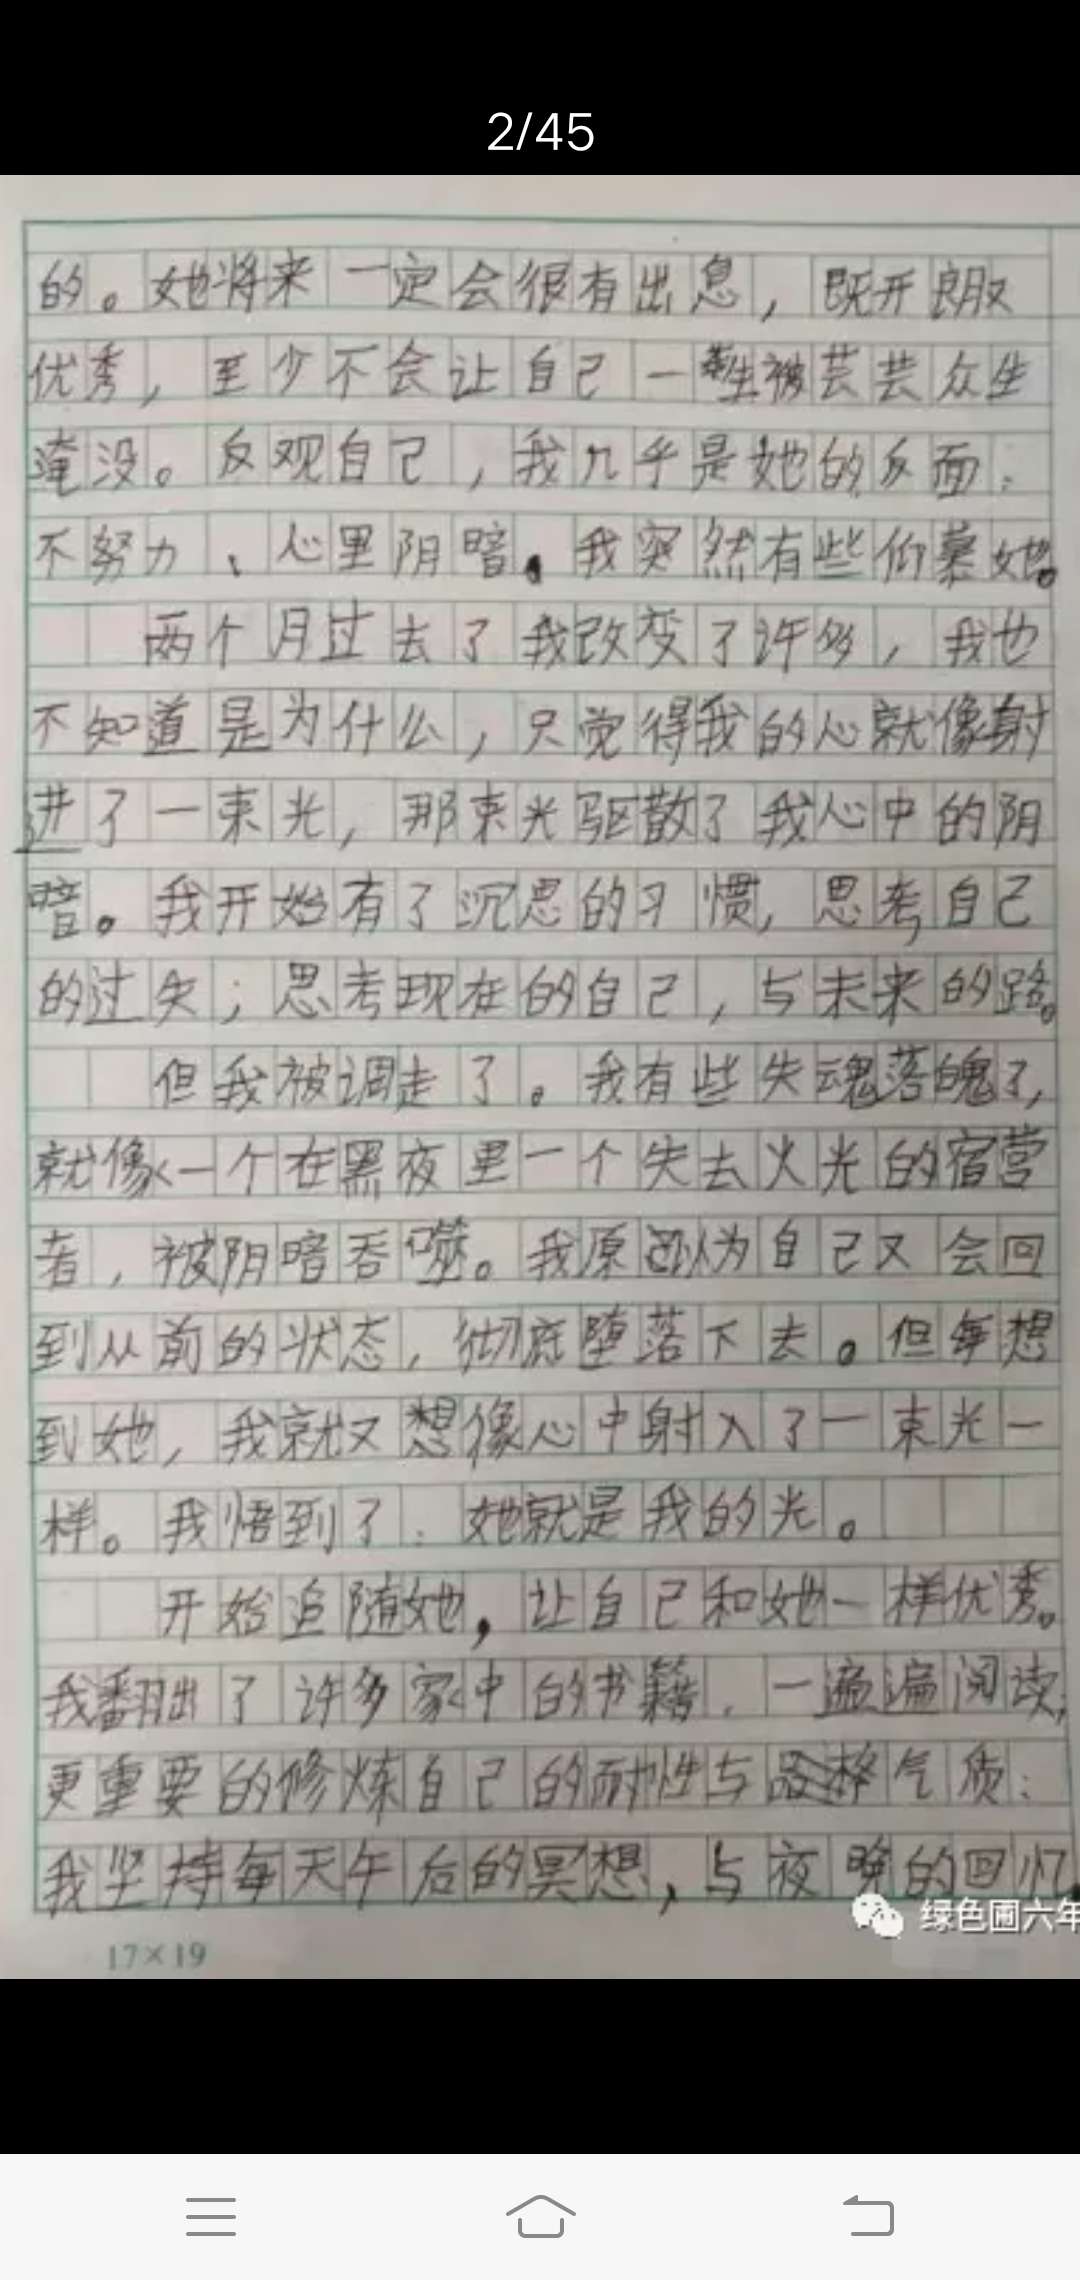 2/45
的。她将来一定会很有出息，既开朗又
优秀，至少不会让自己一生被芸芸众生
淹没。反观自己，我几乎是她的反面：
不努力、心里阴暗。我突然有些仰慕她。
两个月过去了我改变了许多，我也
不知道是为什么，只觉得我的心就像射
进了一束光，那束光驱散了我心中的阴
暗。我开始有了沉思的习惯，思考自己
的过失；思考现在的自己，与未来的路。
但我被调走了。我有些失魂落魄了，
就像一个在黑夜里一个失去火光的宿营
者，被阴暗吞噬。我原以为自己又会回
到从前的状态，彻底堕落下去。但每想
到她，我就又想像心中射入了一束光一
样。我悟到了：她就是我的光。
开始追随她，让自己和她一样优秀。
我翻出了许多家中的书籍，一遍遍阅读；
更重要的修炼自己的耐性与品格气质：
我坚持每天午后的冥想，与夜晚的回忆
绿色圃六年
17×19